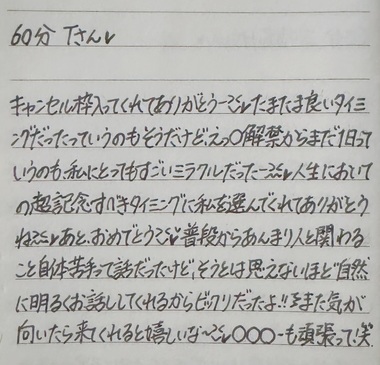 60分 Tさん♥
キャンセル枠入ってくれてありがとうーたまたま良いタイミ
ングだったっていうのもそうだけど、えっ〇解禁からまだ1日って
いうのも、私にとってもすごいミラクルだったー人生において
の超記念すべきタイミングに私を選んでくれてありがとう
ねあと、おめでとう普段からあんまり人と関わる
こと自体苦手って話だったけど、そうとは思えないほど自然
に明るくお話ししてくれるからビックリだったよ!!また気が
向いたら来てくれると嬉しいな〜〇〇〇ーも頑張って!笑